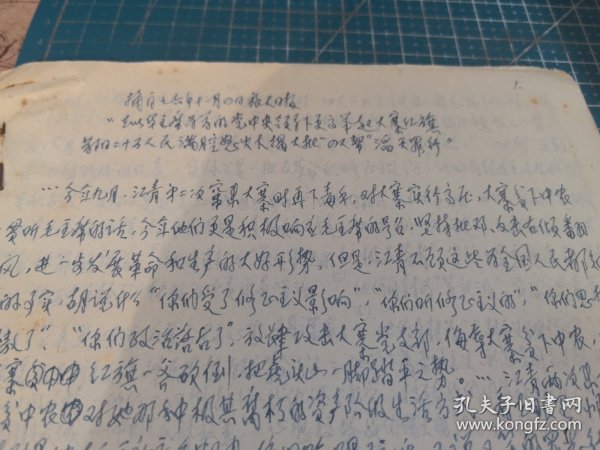 1.
摘自七六年十一月四日旅大日报
"在以华主席为首的党中央领导下更高举起大寨红旗
昔阳二十万人民满腔怒火大揭大批"四人帮"滔天罪行"
…今年九月,江青第二次窜到大寨时再下毒手,对大寨实行高压,大寨贫下中农
最听毛主席的话,今年他们更是积极响应毛主席的号召,坚持批邓、反击右倾翻案
风,进一步发展革命和生产的大好形势。但是,江青不顾这些为全国人民都
的事实,胡说什么"你们受了修正主义影响"、"你们听修正主义的"、"你们思想
散了"、"你们政治落后了",放肆攻击大寨党支部,侮辱大寨贫下中农,
寨 红旗一斧砍倒,把虎头山一脚踏平之势。…江青两次
贫下中农对她那种极其腐朽的资产阶级生活方
孔夫子旧书网
book.kongfz.com